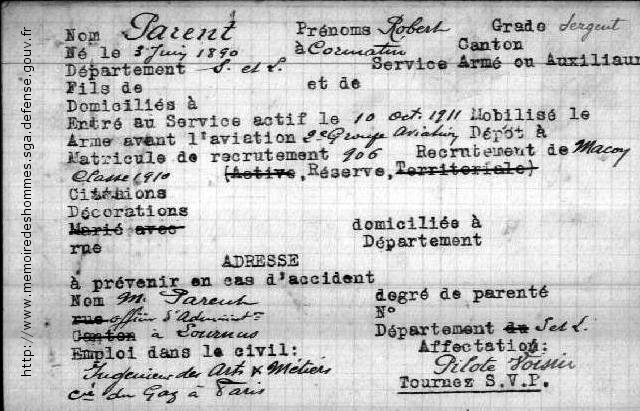 Nom Parent Prénoms Robert Grade Sergent
Né le 3 Juin 1890 à Cormatin Canton
Département S. et L. Service Armé ou Auxiliair
Fils de et de
Domiciliés à
Entré au Service actif le 10 Oct. 1911 Mobilisé le
Arme avant l'aviation 2e Groupe Aviation Dépôt à
Matricule de recrutement 906 Recrutement de Macon
Classe 1910 (Active, Réserve, Territoriale)
Citations
Décorations
Marié avec domiciliée à
rue Département
ADRESSE
à prévenir en cas d'accident
Nom M. Parent degré de parenté
rue officier d'Administ. N°
Canton à Tournus Département du S et L.
Emploi dans le civil: Affectation:
Ingénieur des Arts & Métiers Pilote Voisin
Cie du Gaz à Paris Tournez S.V.P.
http://www.memoiredeshommes.sga.defense.gouv.fr